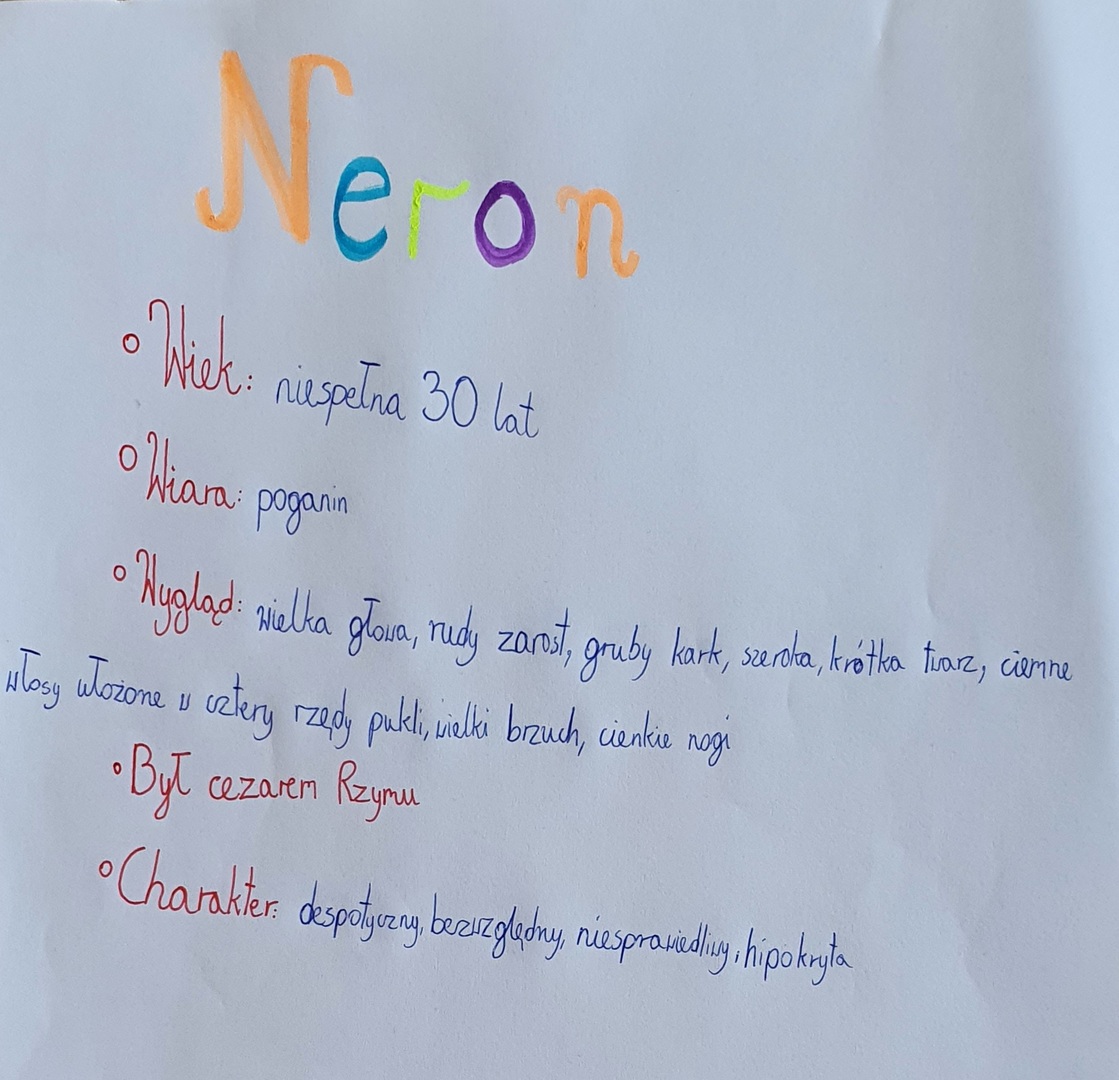 Neron
○ Wiek: niespełna 30 lat
○ Wiara: poganin
○ Wygląd: wielka głowa, rudy zarost, gruby kark, szeroka, krótka twarz, ciemne
włosy ułożone w cztery rzędy pukli, wielki brzuch, cienkie nogi
○ Był cezarem Rzymu
○ Charakter: despotyczny, bezwzględny, niesprawiedliwy, hipokryta